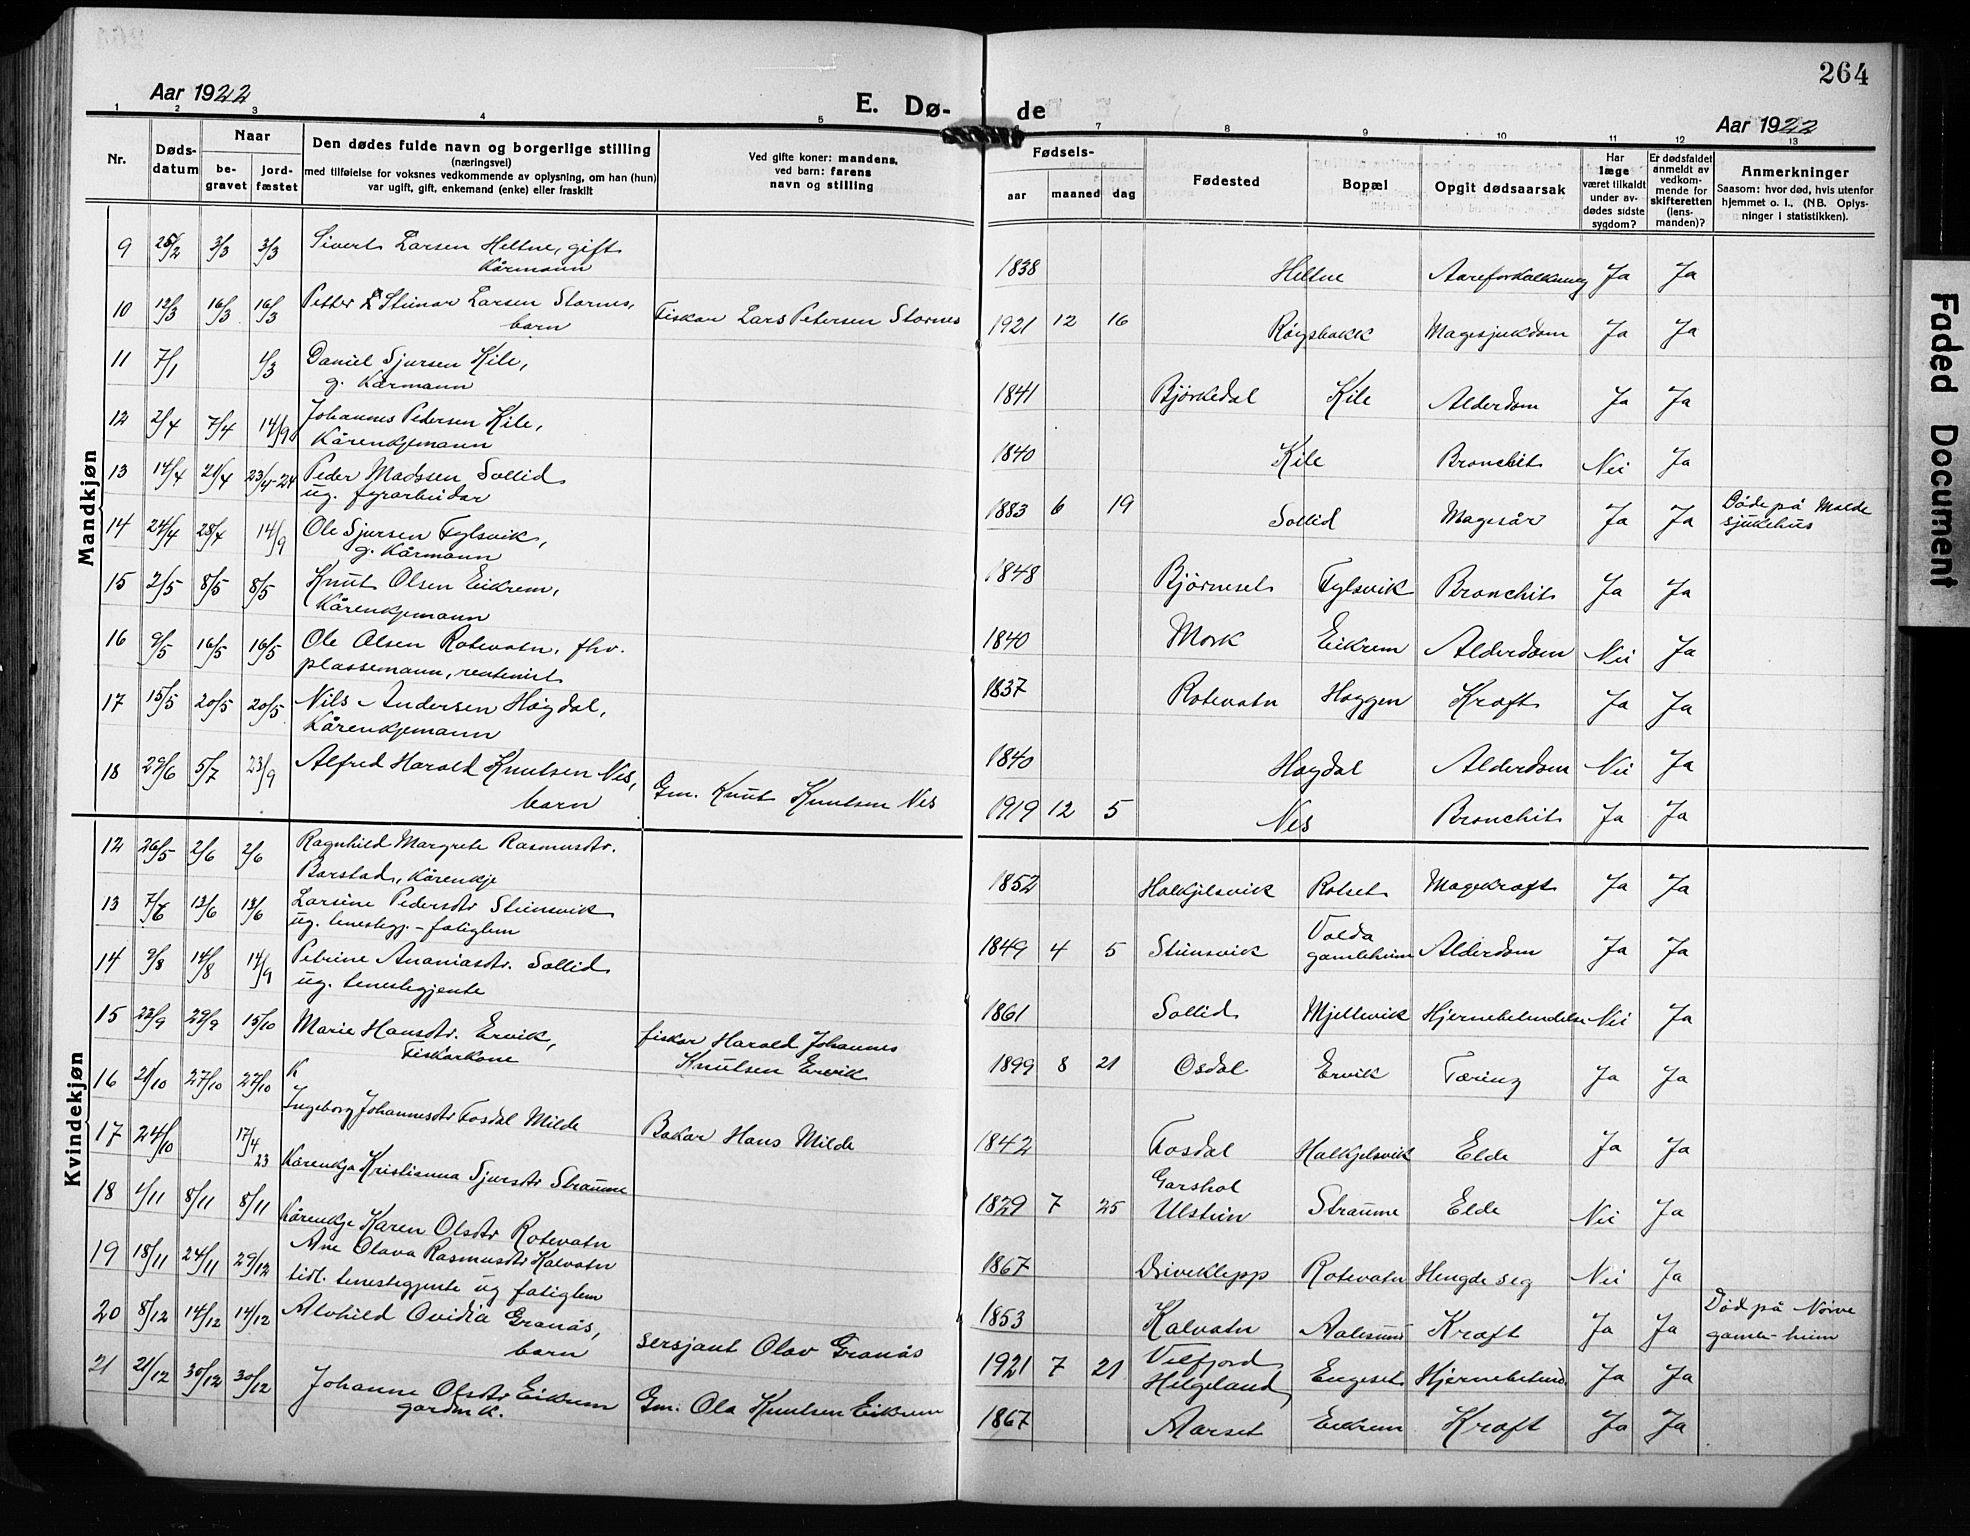 264
Aar 1922
E. Dø-de
Aar 1922
1 2 3 4 5 7 8 9 10 11 12 13
Nr.
Døds-datum
Naar
be-gravet
jord-fæstet
Den dødes fulde navn og borgerlige stilling
(næringsvei)
med tilføielse for voksnes vedkommende av oplysning, om han (hun)
var ugift, gift, enkemand (enke) eller fraskilt
Ved gifte koner: mandens,
ved barn: farens
navn og stilling
Fødsels-
aar maaned dag
Fødested
Bopæl
Opgit dødsaarsak
Har
læge
været tilkaldt
under av-
dødes sidste
sygdom?
Er dødsfaldet
anmeldt av
vedkom-
mende for
skifteretten
(lens-
manden)?
Anmerkninger
Saasom: hvor død, hvis utenfor
hjemmet o. l., (NB. Oplys-
ninger i statistikken).
Mandkjøn
9 25/2 3/3 3/3 Sivert Larsen Heltne, gift
Kårmann
1838 Heltne Aareforkalkning Ja Ja
10 12/3 16/3 16/3 Petter Steinar Larsen Starnes,
barn
Fiskar Lars Petersen Starnes 1921 12 16 Røysbakk Magesjukdom Ja Ja
11 7/1 4/3 Daniel Sjursen Kile,
g. Kårmann
1841 Bjørkedal Kile Alderdom Ja Ja
12 2/4 7/4 14/9 Johannes Pedersen Kile,
Kårenkjemann
1840 Kile Bronchit Nei Ja
13 14/4 21/4 23/4-24 Peder Madssen Sollid
ug. fyrarbeidar
1883 6 19 Sollid Magesår Ja Ja Døde på Molde
sjukehus
14 24/4 28/4 14/9 Ole Sjursen Fylsvik,
g. Kårmann
1848 Bjørneset Fylsvik Bronchit Ja Ja
15 2/5 8/5 8/5 Knut Olsen Eikrem,
Kårenkjemann
1840 Mork Eikrem Alderdom Nei Ja
16 9/5 16/5 16/5 Ole Olsen Rotevatn, fhv.
plassemann, rentenist
1837 Rotevatn Haggen Kraft Ja Ja
17 15/5 20/5 20/5 Nils Andersen Høgdal,
Kårenkjemann
1840 Høgdal Alderdom Nei Ja
18 29/6 5/7 23/9 Alfred Harald Knutsen Nes,
barn
Gm. Knut Knutsen Nes 1919 12 5 Nes Bronchit Ja Ja
Kvindekjøn
12 26/5 2/6 2/6 Ragnhild Margrete Rasmusdtr.
Barstad, Kårenkje
1852 Halkjelsvik Rotset Magekraft Ja Ja
13 7/6 13/6 13/6 Larsine Pedersdtr Steinsvik
ug. tenestegj. - fatiglem
1849 4 5 Steinsvik Volda
gamleheim Alderdom Ja Ja
14 9/8 14/8 14/9 Petrine Ananiasdtr. Sollid
ug. tenestegjente
1861 Sollid Mjellevik Hjernebetendelse Nei Ja
15 23/9 29/9 15/10 Marie Hansdtr. Ervik,
Fiskarkone
fiskar Harald Johannes
Knutsen Ervik
1899 8 21 Osdal Ervik Tæring Ja Ja
16 21/10 27/10 27/10 K
Ingeborg Johannesdtr Fosdal Milde
Bakar Hans Milde
1842 Fosdal Halkjelsvik Elde Ja Ja
17 24/10 17/4 23
Kårenkja Kristianna Sjursdtr Straume
1829 7 25 Garshol
Ulstein Straume Elde Nei Ja
18 4/11 8/11 8/11
Kårenkje Karen Olsdtr Rotevatn
1867 Driveklepp Rotevatn Hengde seg Nei Ja
19 18/11 24/11 29/12 Ane Olava Rasmusdtr Kalvatn
tidl. tenestegjente ug fatiglem
1853 Kalvatn Aalesund Kraft Ja Ja Død på Nørve
gamle-heim
20 8/12 14/12 14/12 Alvhild Ovidia Granås,
barn
sersjant Olav Granås
1921 7 21 Velfjord
Helgeland Engeset Hjernebetend. Ja Ja
21 21/12 30/12 30/12 Johanne Olsdtr Eikrem
gardmk.
Gm. Ola Knutsen Eikrem
1867 Aarset Eikrem Kraft Ja Ja
Faded Document